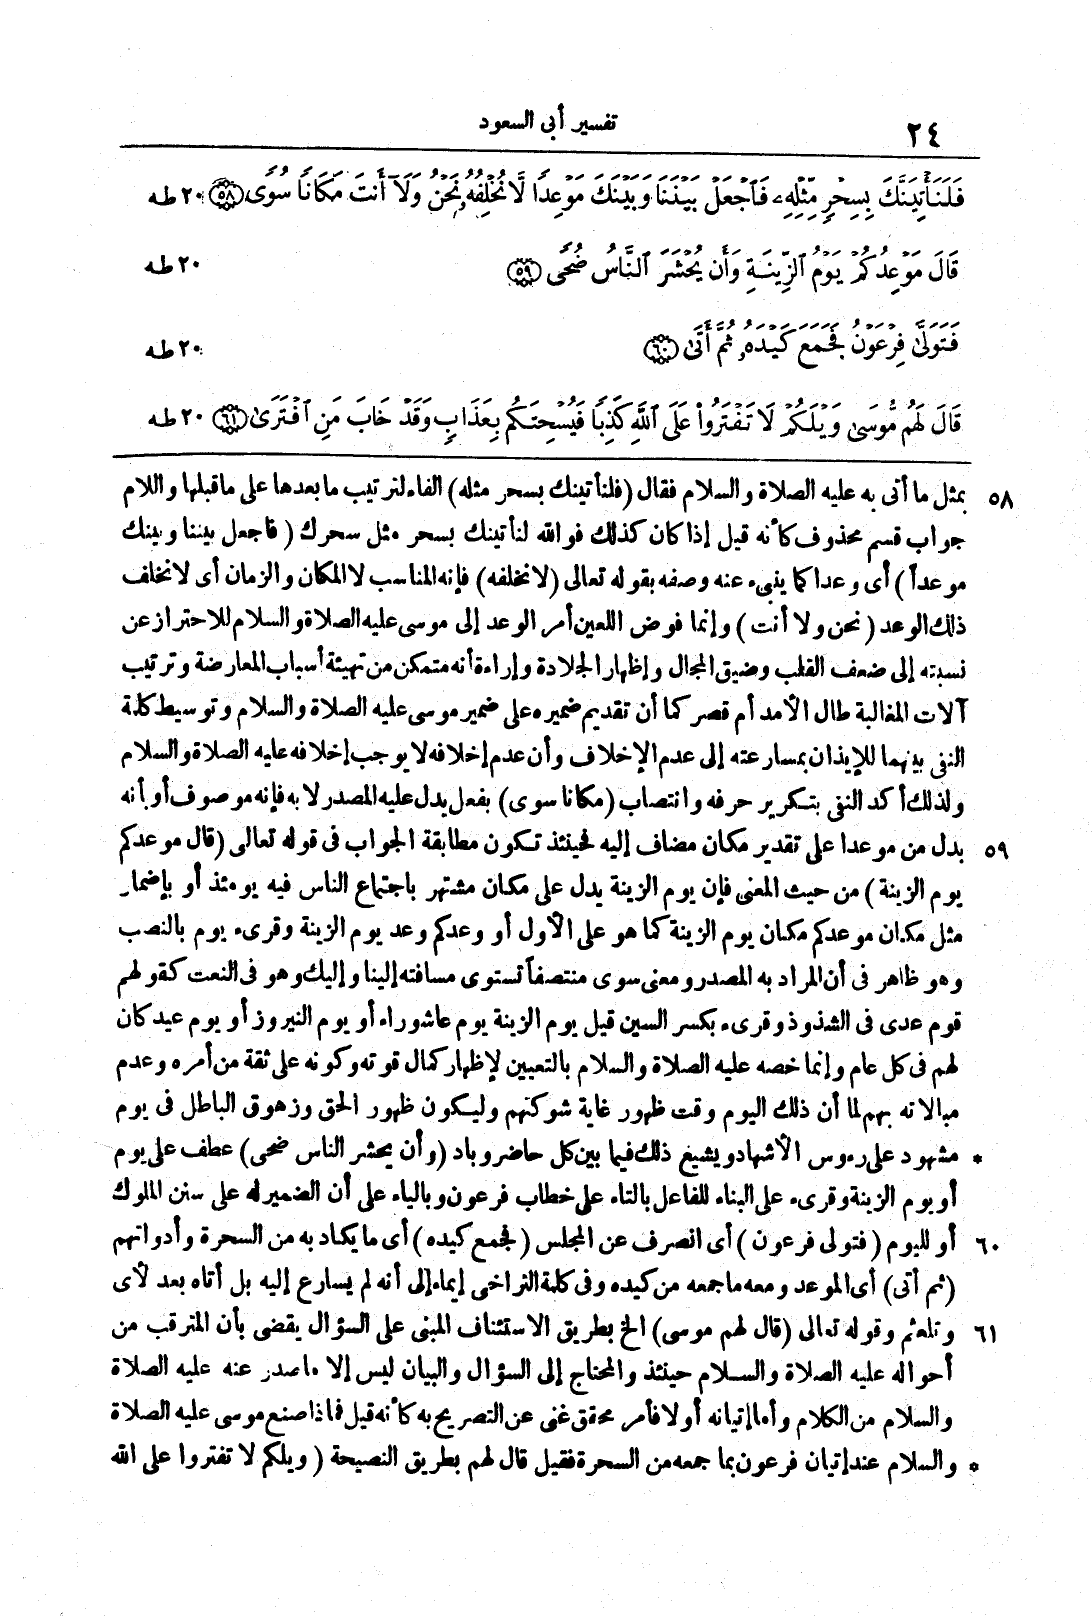 ٢٤ تفسير أبى السعود
فَلَنَأْتِيَنَّكَ بِسِحْرٍ مِّثْلِهِۦ فَٱجْعَلْ بَيْنَنَا وَبَيْنَكَ مَوْعِدًا لَّا نُخْلِفُهُۥ نَحْنُ وَلَآ أَنتَ مَكَانًا سُوًى ﴿٥٨﴾ ٢٠ طه
قَالَ مَوْعِدُكُمْ يَوْمُ ٱلزِّينَةِ وَأَن يُحْشَرَ ٱلنَّاسُ ضُحًى ﴿٥٩﴾ ٢٠ طه
فَتَوَلَّىٰ فِرْعَوْنُ فَجَمَعَ كَيْدَهُۥ ثُمَّ أَتَىٰ ﴿٦٠﴾ ٢٠ طه
قَالَ لَهُم مُّوسَىٰ وَيْلَكُمْ لَا تَفْتَرُوا۟ عَلَى ٱللَّهِ كَذِبًا فَيُسْحِتَكُم بِعَذَابٍ وَقَدْ خَابَ مَنِ ٱفْتَرَىٰ ﴿٦١﴾ ٢٠ طه
٥٨ بمثل ما أتى به عليه الصلاة والسلام فقال (فلنأتينك بسحر مثله) الفاء لترتيب ما بعدها على ما قبلها واللام
جواب قسم محذوف كأنه قيل إذا كان كذلك فوالله لنأتينك بسحر مثل سحرك (فاجعل بيننا وبينك
موعداً) أى وعدا كما ينبىء عنه وصفه بقوله تعالى (لا نخلفه) فإنه المناسب لا المكان والزمان أى لا نخلف
ذلك الوعد (نحن ولا أنت) وإنما فوض اللعين أمر الوعد إلى موسى عليه الصلاة والسلام للاحتراز عن
نسبته إلى ضعف القلب وضيق المجال وإظهار الجلادة وإراءة أنه متمكن من تهيئة أسباب المعارضة وترتيب
آلات المغالبة طال الأمد أم قصر كما أن تقديم ضميره على ضمير موسى عليه الصلاة والسلام وتوسيط كلمة
النفى بينهما للإيذان بمسارعته إلى عدم الإخلاف وأن عدم إخلافه لا يوجب إخلافه عليه الصلاة والسلام
ولذلك أكد النفى بتكرير حرفه وانتصاب (مكانا سوى) بفعل يدل عليه المصدر لا به فإنه موصوف أو بأنه
٥٩ بدل من موعدا على تقدير مكان مضاف إليه فحينئذ تكون مطابقة الجواب فى قوله تعالى (قال موعدكم
يوم الزينة) من حيث المعنى فإن يوم الزينة يدل على مكان مشتهر باجتماع الناس فيه يومئذ أو بإضمار
مثل مكان موعدكم مكان يوم الزينة كما هو على الأول أو وعدكم وعد يوم الزينة وقرىء يوم بالنصب
وهو ظاهر فى أن المراد به المصدر ومعنى سوى منتصفاً تستوى مسافته إلينا وإليك وهو فى النعت كقولهم
قوم عدى فى الشذوذ وقرىء بكسر السين قيل يوم الزينة يوم عاشوراء أو يوم النيروز أو يوم عيد كان
لهم فى كل عام وإنما خصه عليه الصلاة والسلام بالتعيين لإظهار كمال قوته وكونه على ثقة من أمره وعدم
مبالاته بهم لما أن ذلك اليوم وقت ظهور غاية شوكتهم وليكون ظهور الحق وزهوق الباطل فى يوم
* مشهود على رءوس الأشهاد ويشيع ذلك فيما بين كل حاضر وباد (وأن يحشر الناس ضحى) عطف على يوم
أو يوم الزينة وقرىء على البناء للفاعل بالتاء على خطاب فرعون وبالياء على أن الضمير له على سنن الملوك
٦٠ أو لليوم (فتولى فرعون) أى انصرف عن المجلس (فجمع كيده) أى ما يكاد به من السحرة وأدواتهم
(ثم أتى) أى الموعد ومعه ما جمعه من كيده وفى كلمة التراخى إيماء إلى أنه لم يسارع إليه بل أتاه بعد لأى
٦١ وتلعثم وقوله تعالى (قال لهم موسى) الخ بطريق الاستئناف المبنى على السؤال يقضى بأن المترقب من
أحواله عليه الصلاة والسلام حينئذ والمحتاج إلى السؤال والبيان ليس إلا ما صدر عنه عليه الصلاة
والسلام من الكلام وأما إتيانه أولا فأمر محقق غنى عن التصريح به كأنه قيل فماذا صنع موسى عليه الصلاة
* والسلام عند إتيان فرعون بما جمعه من السحرة فقيل قال لهم بطريق النصيحة (ويلكم لا تفتروا على الله